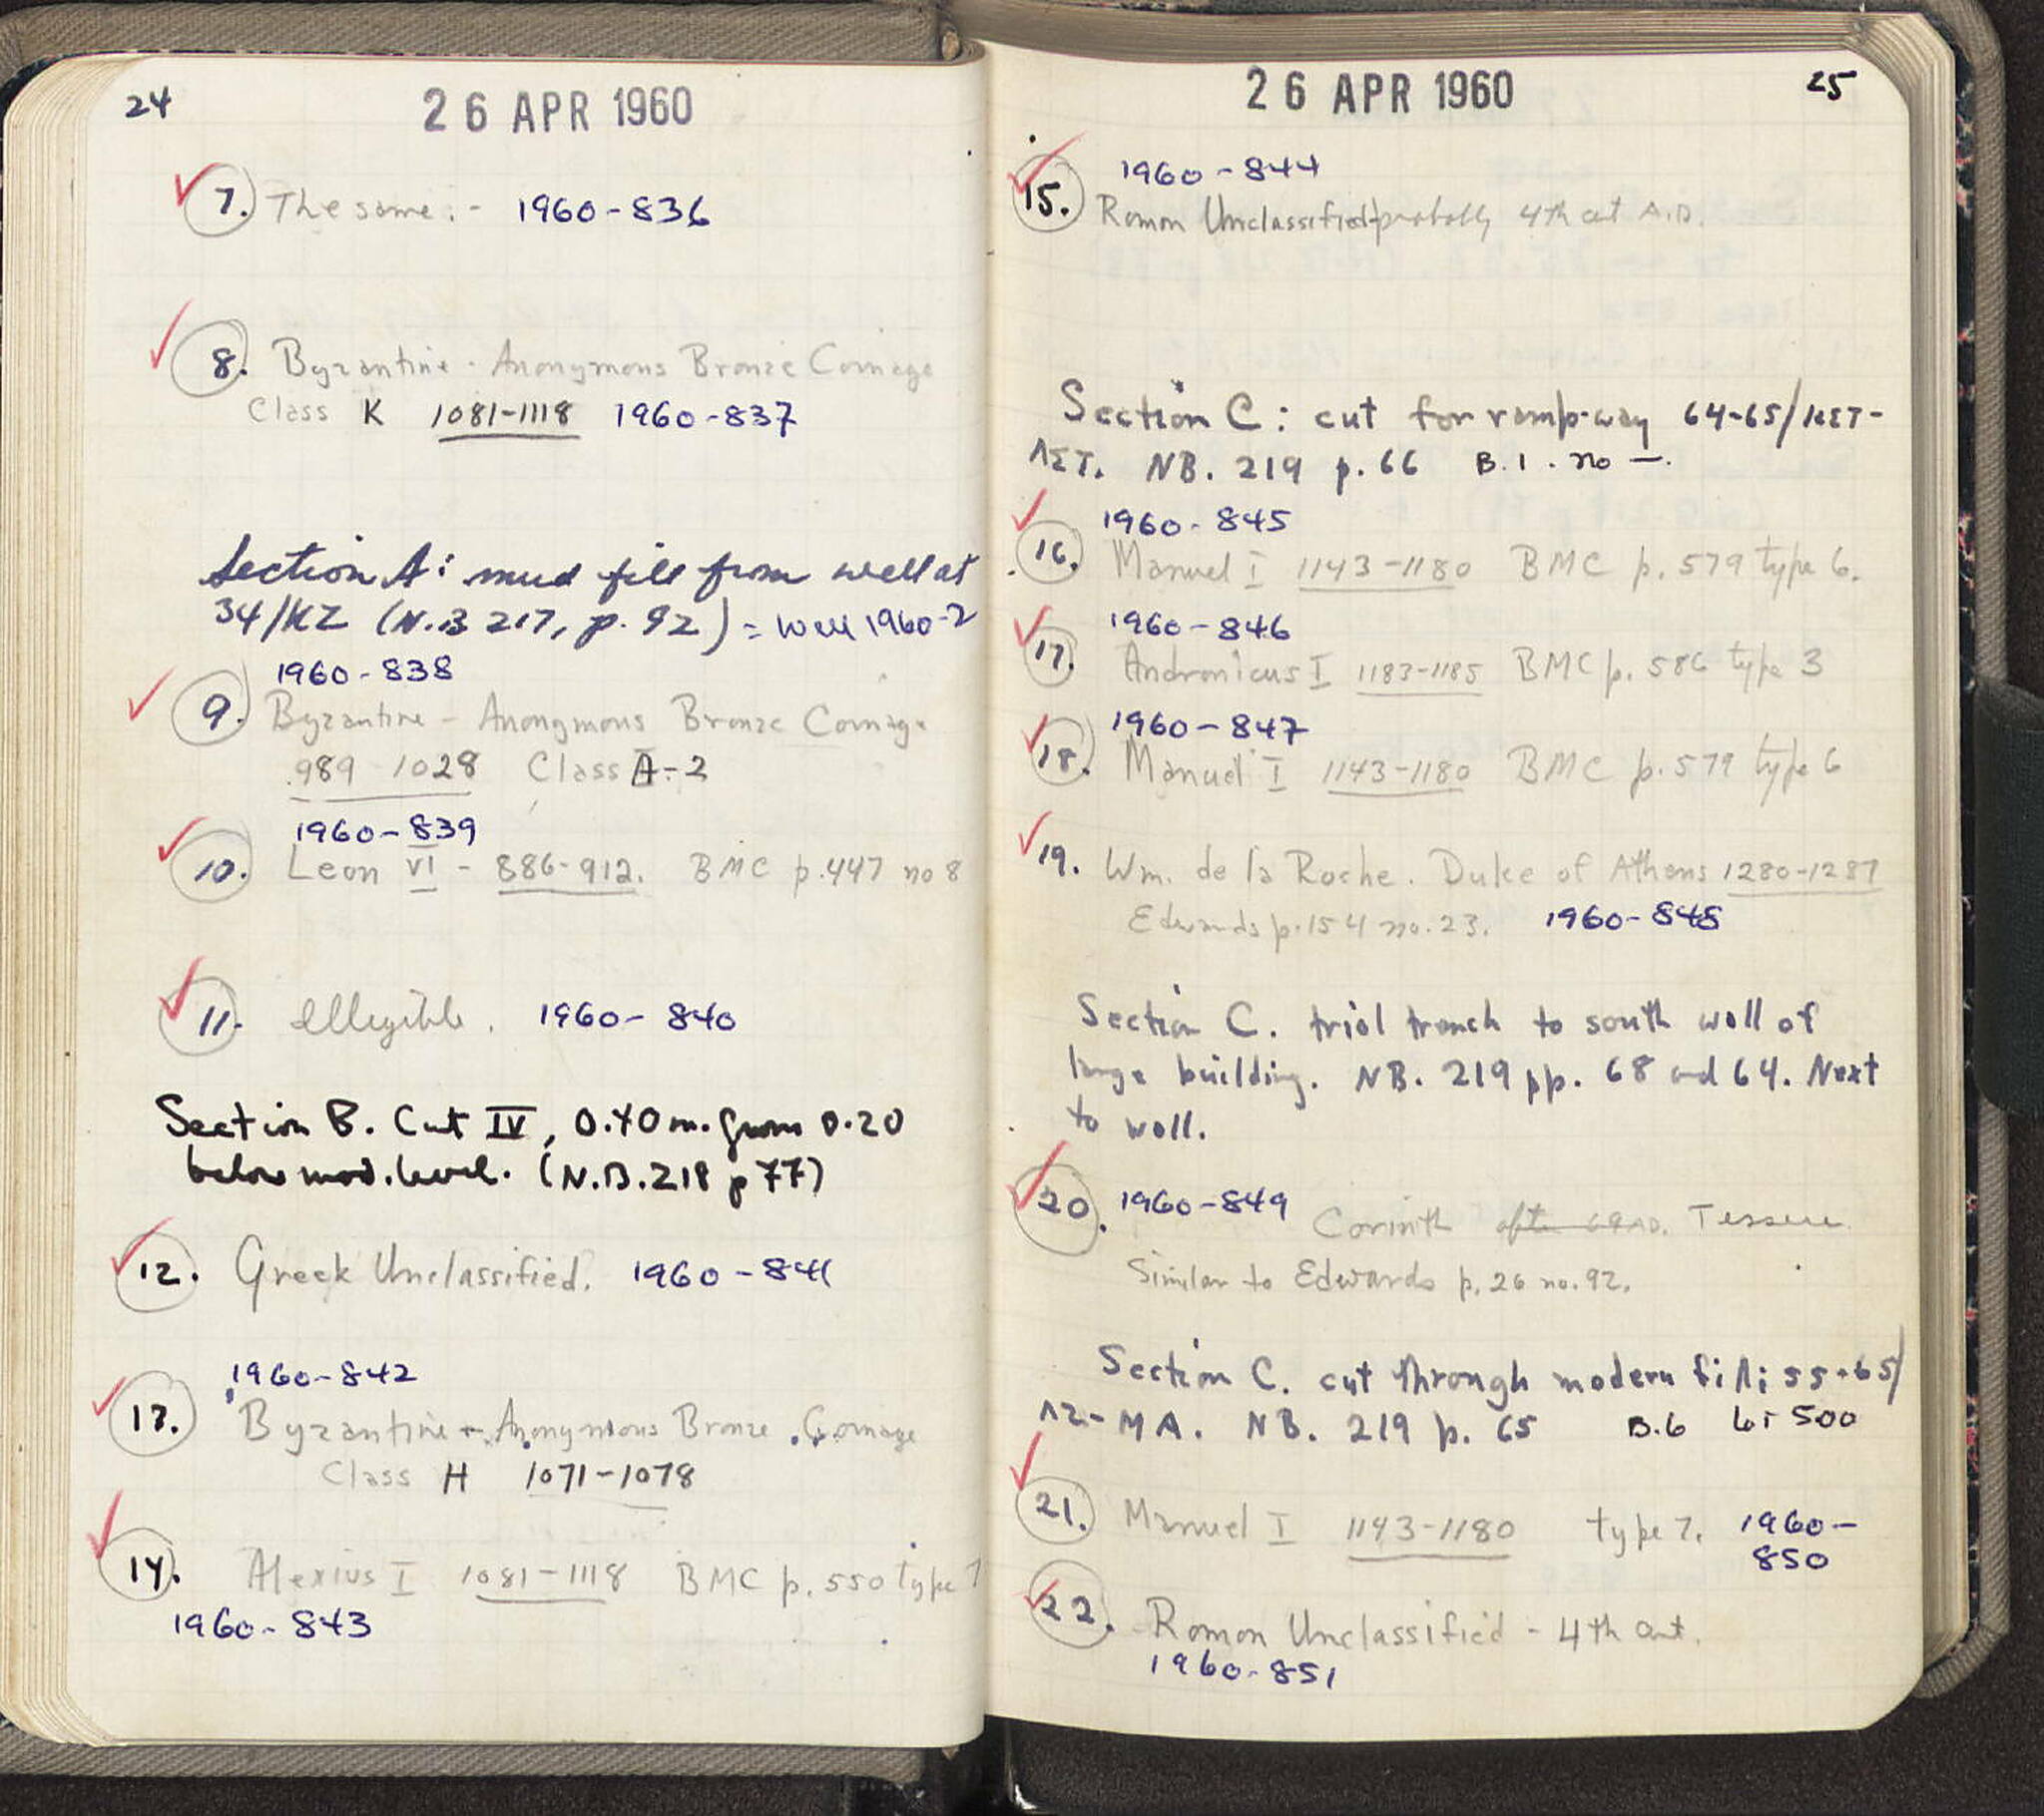 24
26 APR 1960
7. The same. - 1960-836
8. Byzantine - Anonymous Bronze Coinage
Class K 1081-1118 1960-837
Section A: mud fill from well at
34/KZ (N.B 217, p. 92) = Well 1960-2
1960-838
9. Byzantine - Anonymous Bronze Coinage
989-1028 Class A-2
1960-839
10. Leon VI - 886-912. BMC p.447 no 8
11. illegible. 1960-840
Section B. Cut IV, 0.40m. from 0.20
below mod. level. (N.B.218 p 77)
12. Greek Unclassified. 1960-841
1960-842
13. Byzantine - Anonymous Bronze Coinage
Class H 1071-1078
14. Alexius I 1081-1118 BMC p. 550 type 7
1960-843
25
26 APR 1960
1960-844
15. Roman Unclassified-probably 4th cent A.D.
Section C: cut for ramp-way 64-65/
NB. 219 p. 66 B.1. no -.
1960-845
16. Manuel I 1143-1180 BMC p. 579 type 6.
1960-846
17. Andronicus I 1183-1185 BMC p. 586 type 3
1960-847
18. Manuel I 1143-1180 BMC p. 579 type 6
19. Wm. de la Roche. Duke of Athens 1280-1287
Edwards p.154 no.23. 1960-848
Section C. trial trench to south wall of
large building. NB. 219 pp. 68 and 64. Next
to wall.
20. 1960-849 Corinth after 69 AD. Tessera
Similar to Edwards p. 26 no. 92.
Section C. cut through modern fill; 55-65/
ΛΖ-ΜΑ. NB. 219 p. 65 B.6 lot 500
21. Manuel I 1143-1180 type 7. 1960-
850
22. Roman Unclassified - 4th cent.
1960-851